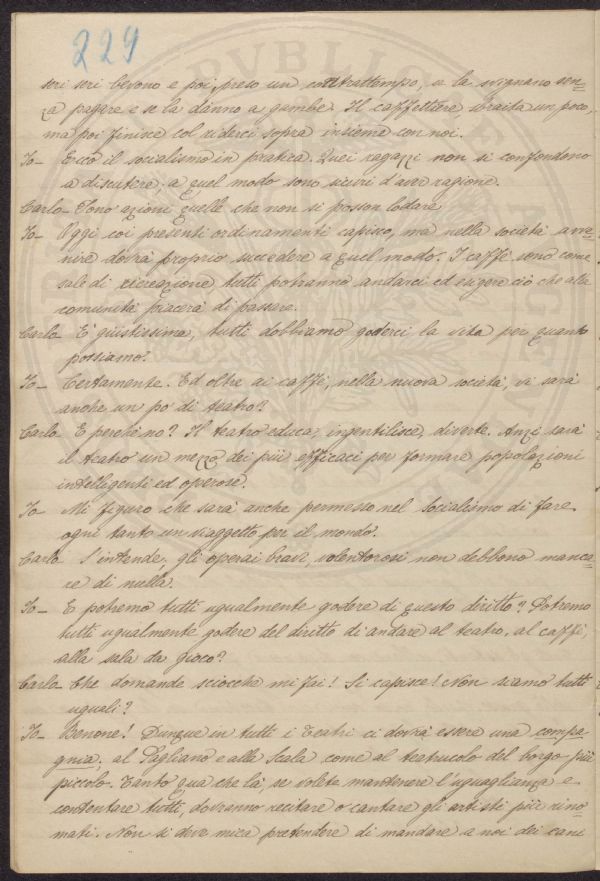 229
seri seri bevono e poi, preso un contrattempo, se la svignano sen=
za pagare e se la danno a gambe. Il caffettiere sbraita un poco,
ma poi finisce col riderci sopra insieme con noi.
Io- Ecco il socialismo in pratica. Quei ragazzi non si confondono
a discutere; a quel modo sono sicuri d'aver ragione.
Carlo- Sono azioni quelle che non si posson lodare
Io- Oggi coi presenti ordinamenti capisco, ma nella società avve=
nire dovrà proprio succedere a quel modo. I caffè sono come
sale di ricreazione tutti potranno andarci ed esigere ciò che alla
comunità piacerà di passare.
Carlo- È giustissimo, tutti dobbiamo goderci la vita per quanto
possiamo.
Io- Certamente. Ed oltre ai caffè, nella nuova società, vi sarà
anche un po' di teatro?
Carlo- E perchè no? Il teatro educa, ingentilisce, diverte. Anzi sarà
il teatro un mezzo dei più efficaci per formare popolazioni
intelligenti ed operose.
Io- Mi figuro che sarà anche permesso nel Socialismo di fare
ogni tanto un viaggetto per il mondo.
Carlo- S'intende, gli operai bravi, volenterosi non debbono manca=
re di nulla.
Io- E potremo tutti ugualmente godere di questo diritto? Potremo
tutti ugualmente godere del diritto di andare al teatro, al caffè,
alla sala da gioco?
Carlo- Che domande sciocche mi fai! Si capisce! Non siamo tutti
uguali?
Io- Benone! Dunque in tutti i Teatri ci dovrà essere una compa=
gnia; al Pagliano e alla Scala come al teatrucolo del borgo più
piccolo. Tanto qua che là, se volete mantenere l'uguaglianza e
contentare tutti, dovranno recitare o cantare gli artisti più rino=
mati. Non si deve mica pretendere di mandare a noi dei cani